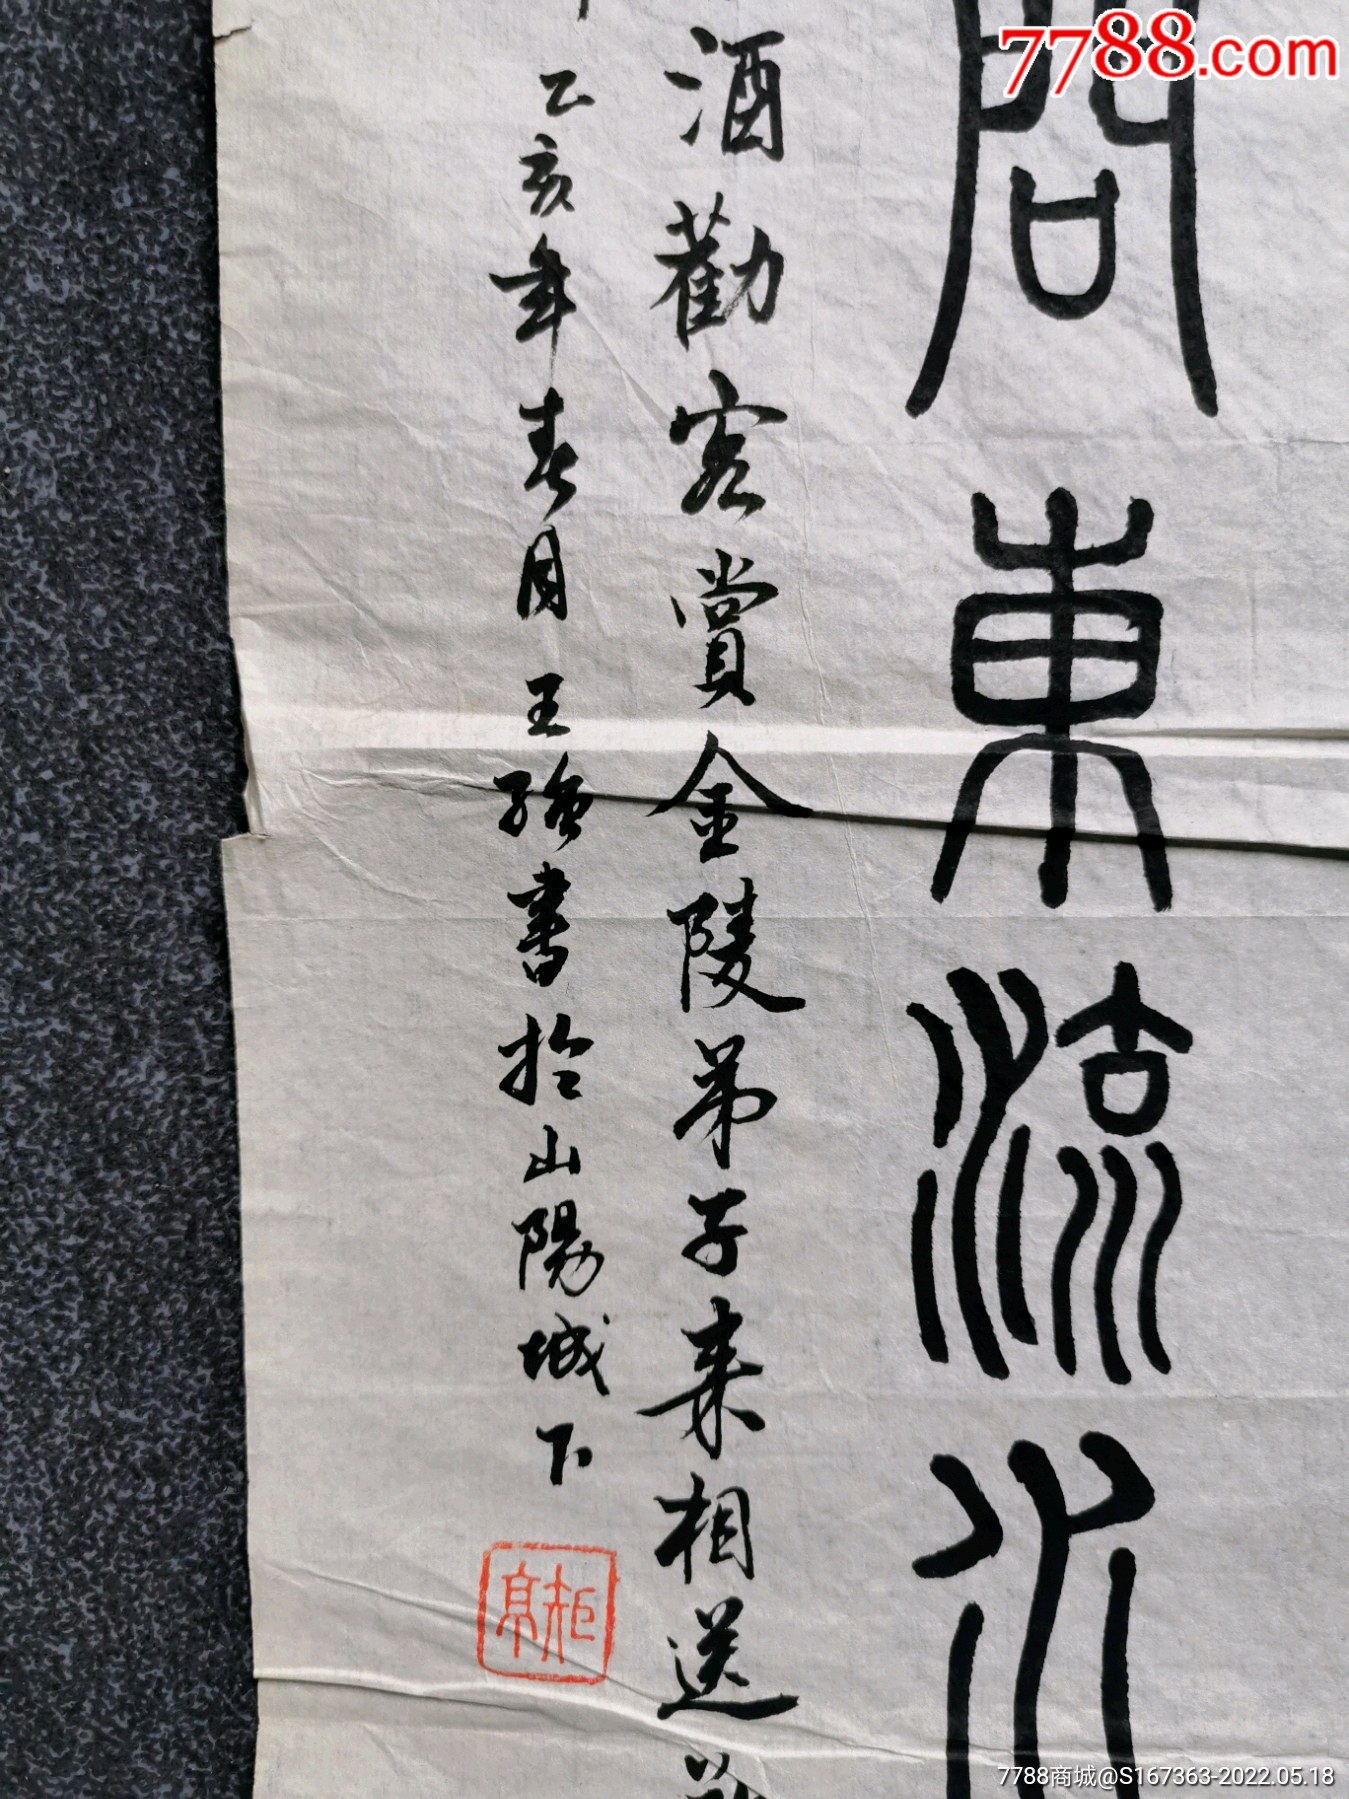 7788.com
問東流水
酒勸客賞金陵弟子来相送
乙亥年春月王強書於山陽城下
7788商城@S167363-2022.05.18